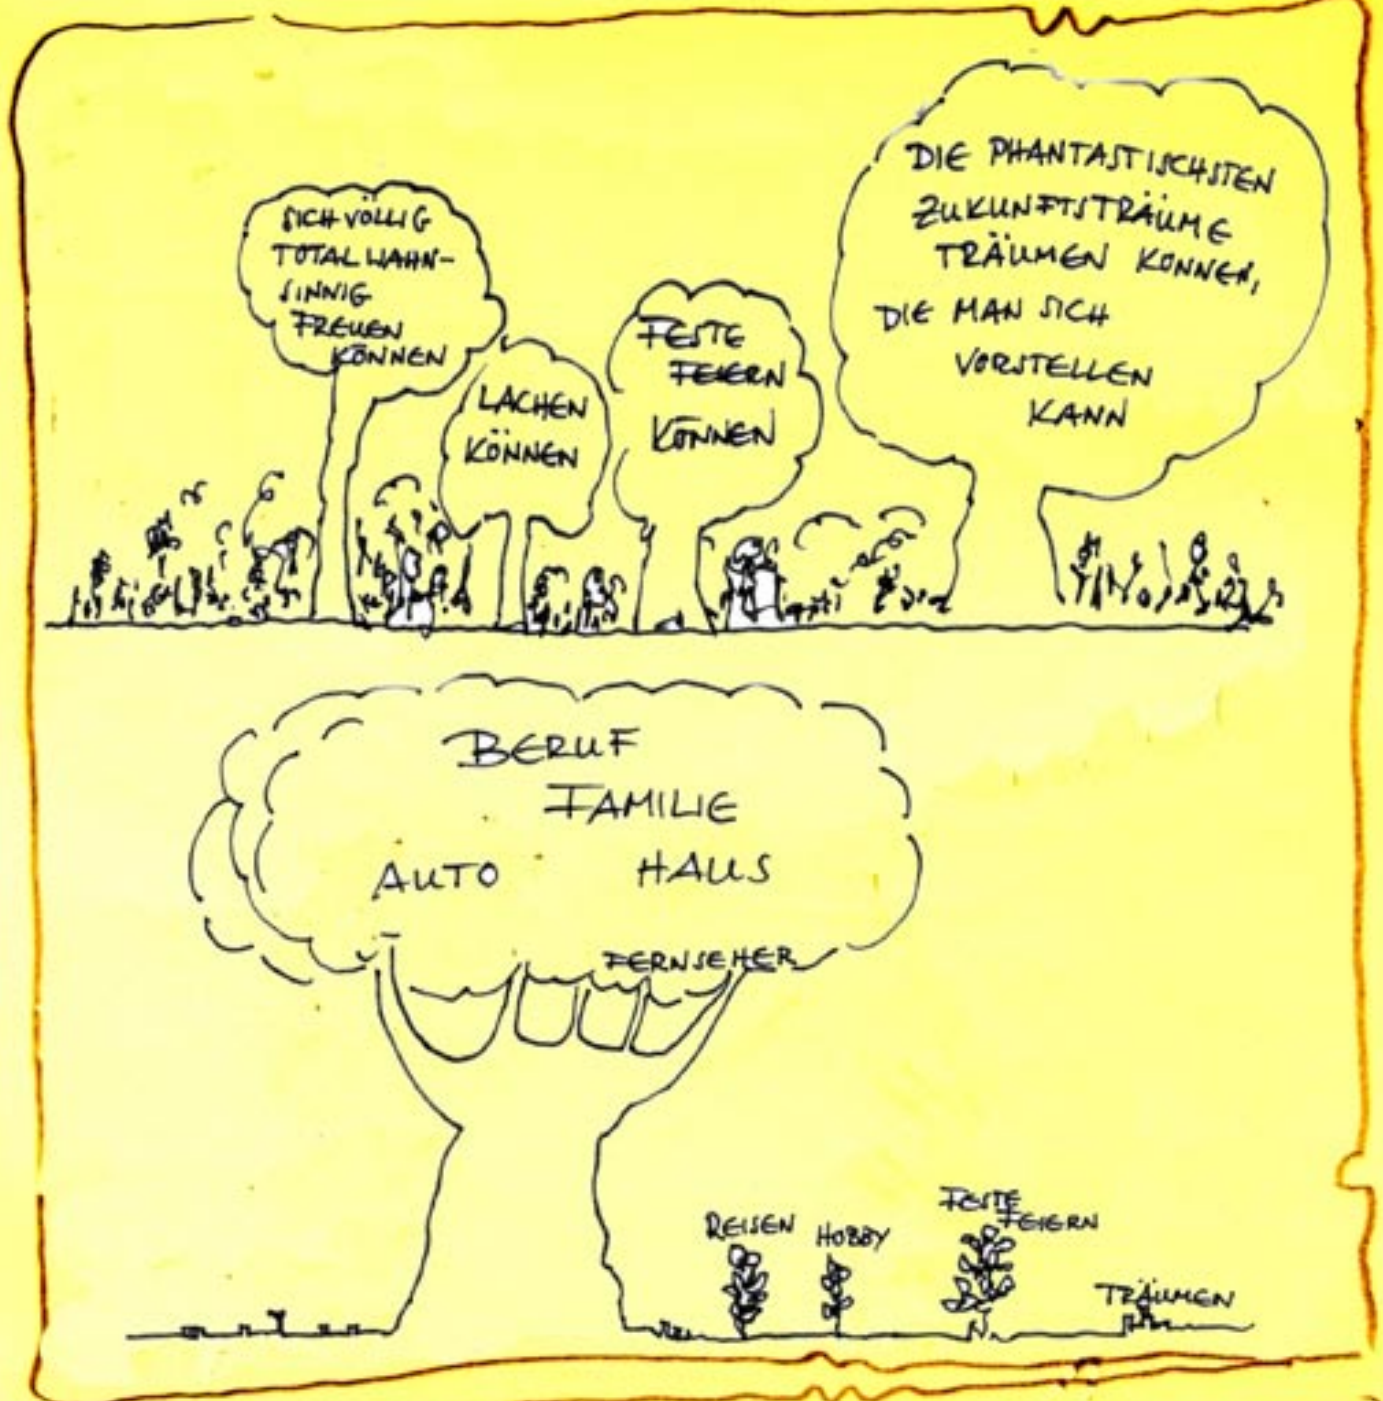 SICH VÖLLIG
TOTAL WAHN-
SINNIG
FREUEN
KÖNNEN
LACHEN
KÖNNEN
FESTE
FEIERN
KÖNNEN
DIE PHANTASTISCHSTEN
ZUKUNFTSTRÄUME
TRÄUMEN KÖNNEN,
DIE MAN SICH
VORSTELLEN
KANN
BERUF
FAMILIE
AUTO HAUS
FERNSEHER
REISEN
HOBBY
FESTE
FEIERN
TRÄUMEN